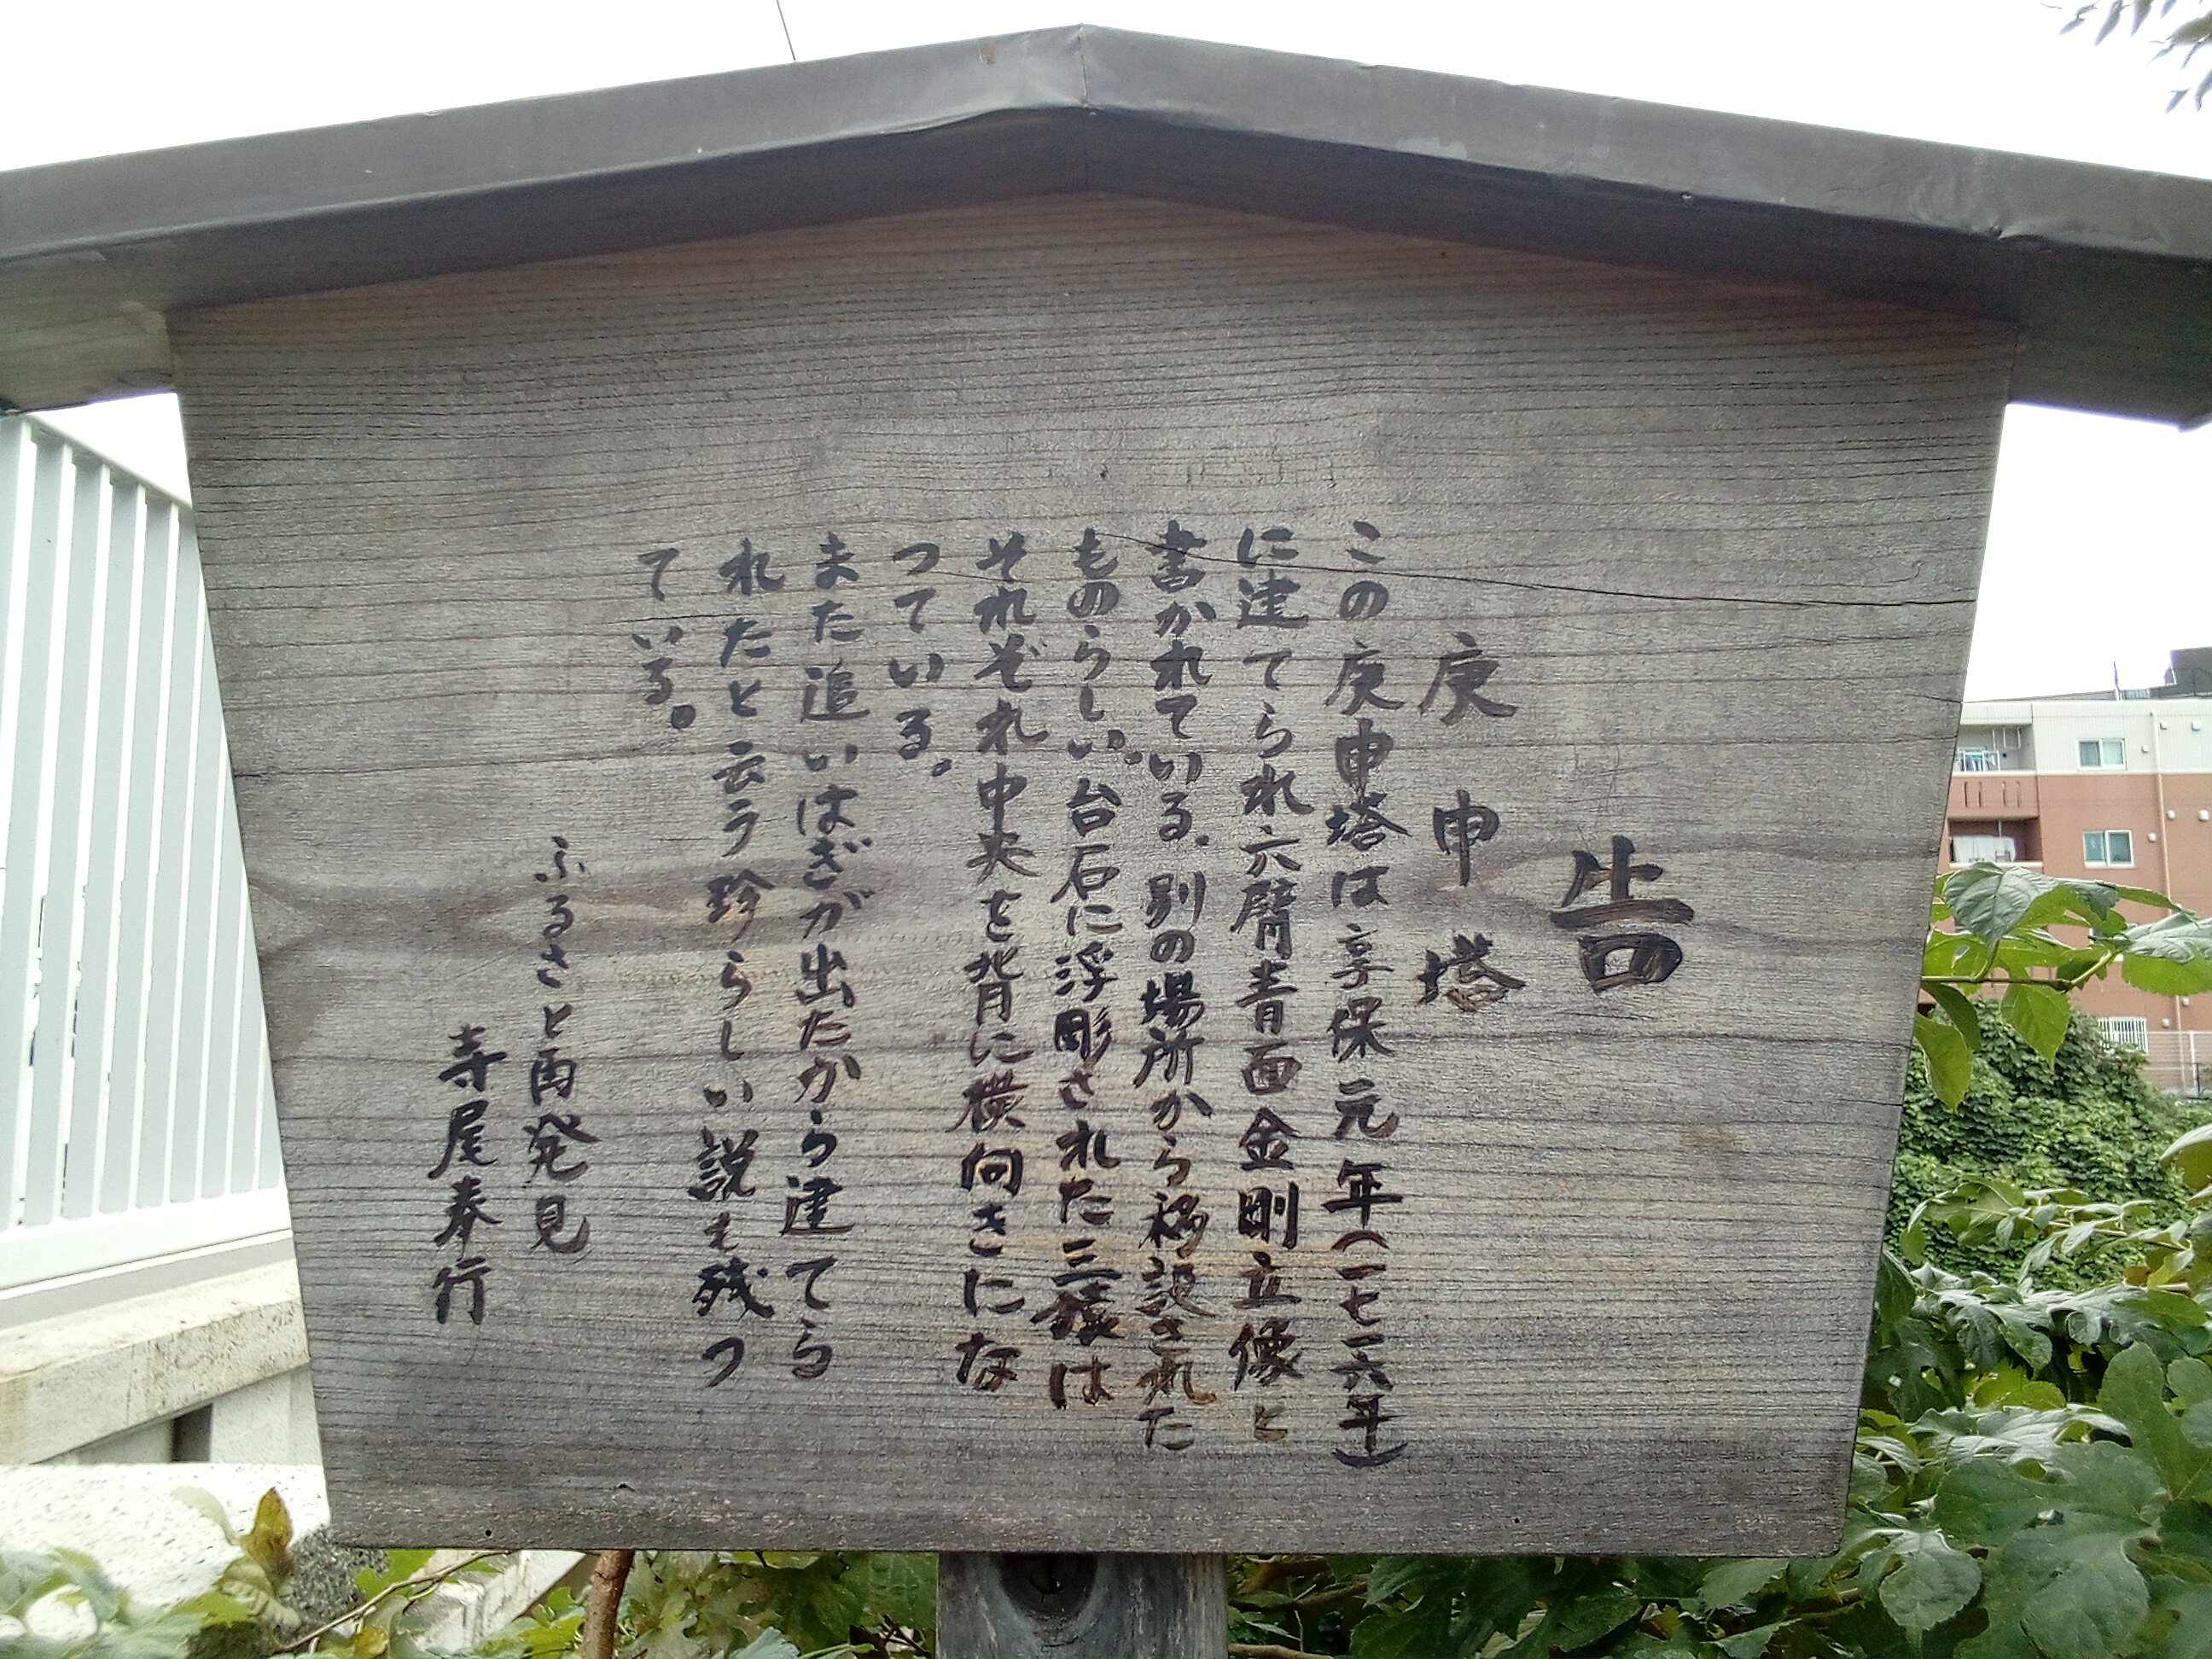 告
庚申塔
この庚申塔は享保元年(一七一六年)
に建てられ六臂青面金剛立像と
書かれている。別の場所から移設された
ものらしい。台石に浮彫された三猿は
それぞれ中央を背に横向きにな
つている。
また追いはぎが出たから建てら
れたと云う珍らしい説も残つ
ている。
ふるさと再発見
寺尾奉行